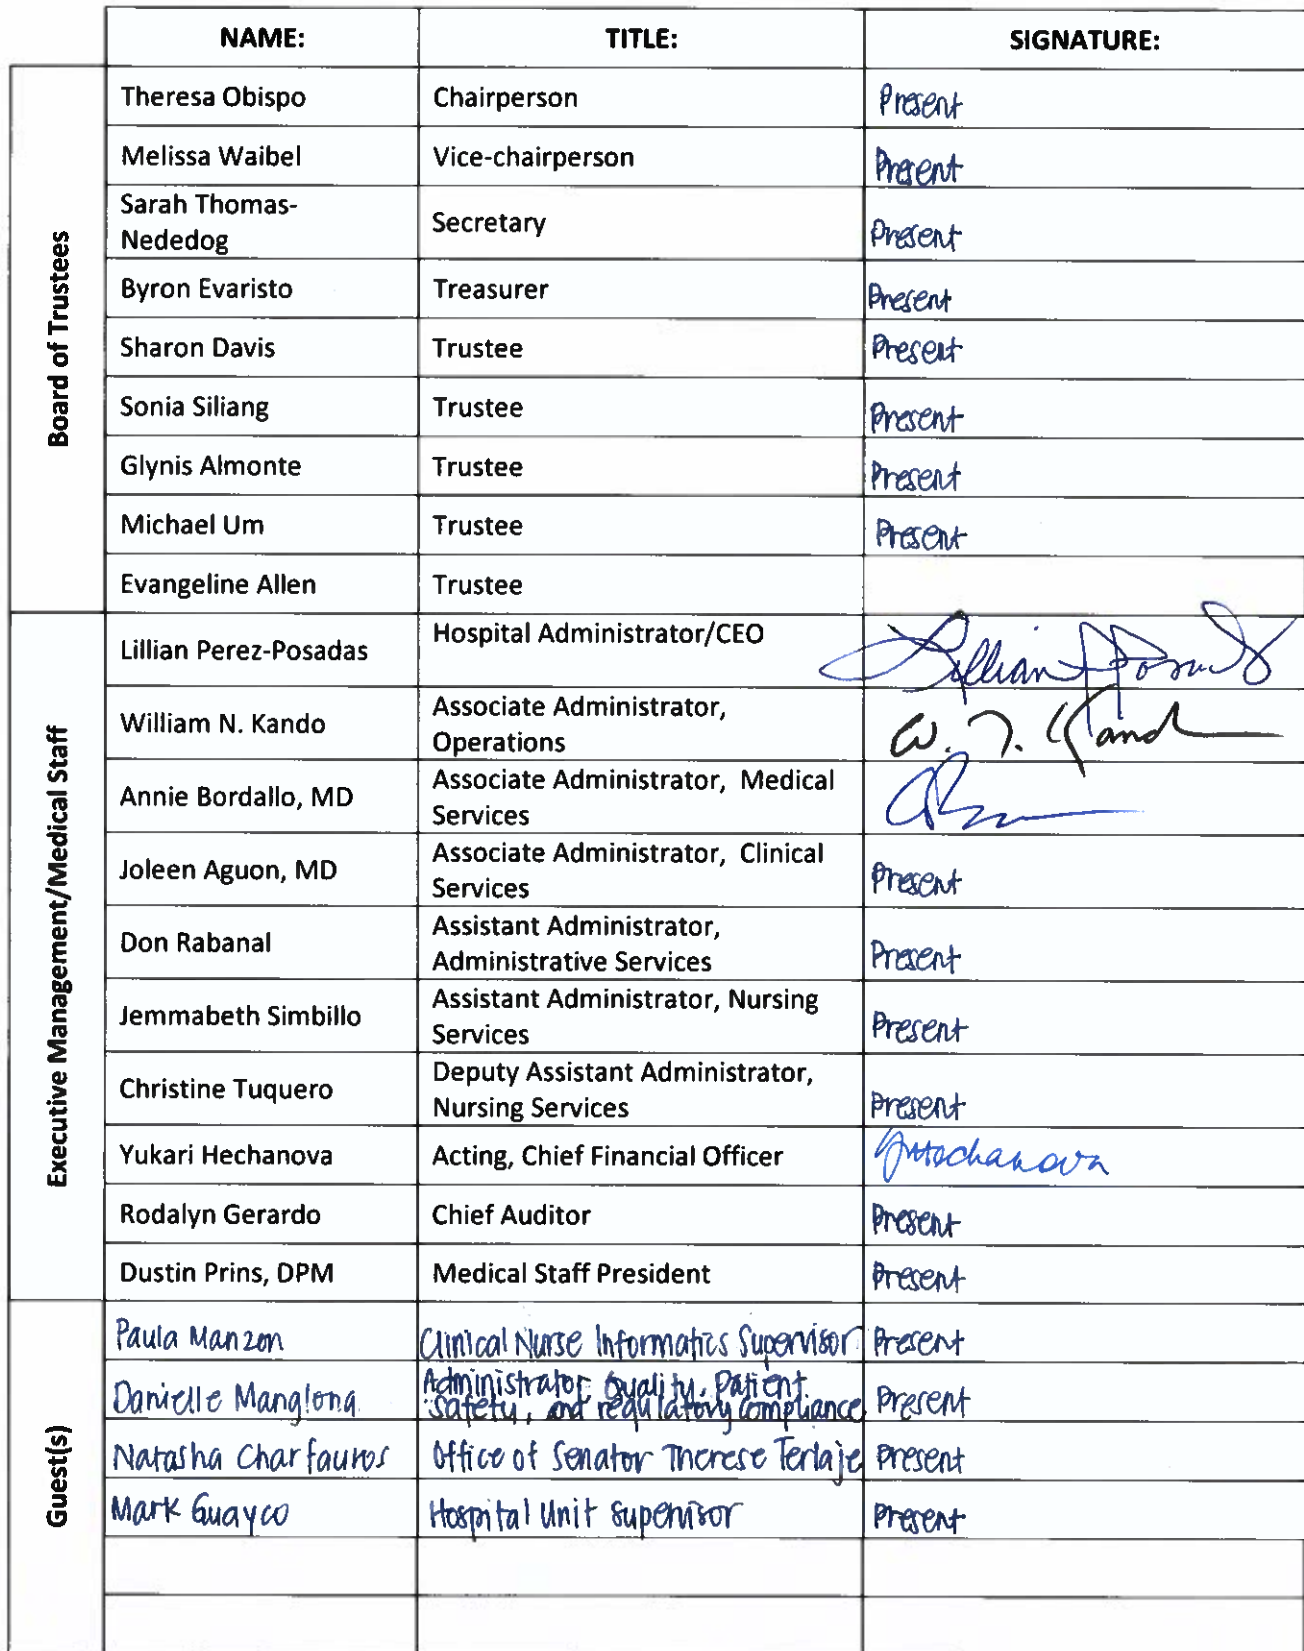 NAME: TITLE: SIGNATURE:
Board of Trustees
Theresa Obispo Chairperson Present
Melissa Waibel Vice-chairperson Present
Sarah Thomas-
Nededog Secretary Present
Byron Evaristo Treasurer Present
Sharon Davis Trustee Present
Sonia Siliang Trustee Present
Glynis Almonte Trustee Present
Michael Um Trustee Present
Evangeline Allen Trustee
Executive Management/Medical Staff
Lillian Perez-Posadas Hospital Administrator/CEO Lillian Posadas
William N. Kando Associate Administrator,
Operations W. N. Kando
Annie Bordallo, MD Associate Administrator, Medical
Services
Joleen Aguon, MD Associate Administrator, Clinical
Services Present
Don Rabanal Assistant Administrator,
Administrative Services Present
Jemmabeth Simbillo Assistant Administrator, Nursing
Services Present
Christine Tuquero Deputy Assistant Administrator,
Nursing Services Present
Yukari Hechanova Acting, Chief Financial Officer YHechanova
Rodalyn Gerardo Chief Auditor Present
Dustin Prins, DPM Medical Staff President Present
Guest(s)
Paula Manzon Clinical Nurse Informatics Supervisor Present
Danielle Manglona Administrator Quality, Patient
Safety, and regulatory compliance Present
Natasha Charfauros Office of Senator Therese Terlaje Present
Mark Guayco Hospital Unit Supervisor Present